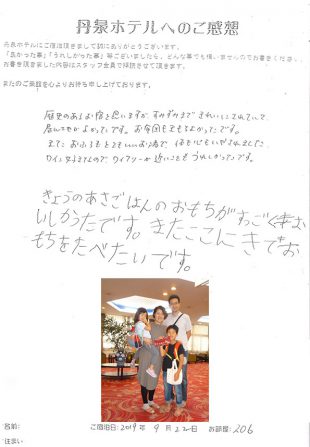 丹泉ホテルへのご感想
丹泉ホテルにご宿泊頂きまして誠にありがとうございます。
「良かった事」「うれしかった事」等ございましたら、どんな事でも構いませんのでお書きください。
お書き頂きました内容はスタッフ全員で拝読させて頂きます。
またのご来館を心よりお待ち申し上げております。
歴史のあるお宿と思いますが、すみずみまできれいにしてあって、
居心地がよかったです。お食事もとてもよかったです。
また、おふろもとてもいいお湯で、体も心もいやされました。
ワイン好きなので、ワイナリーが近いこともうれしかったです。
きょうのあさごはんのおもちがすっごくお
いしかったです。またここにきてお
もちをたべたいです。
名前:
ご宿泊日: 2019年 9月 22日
お部屋: 206
住まい